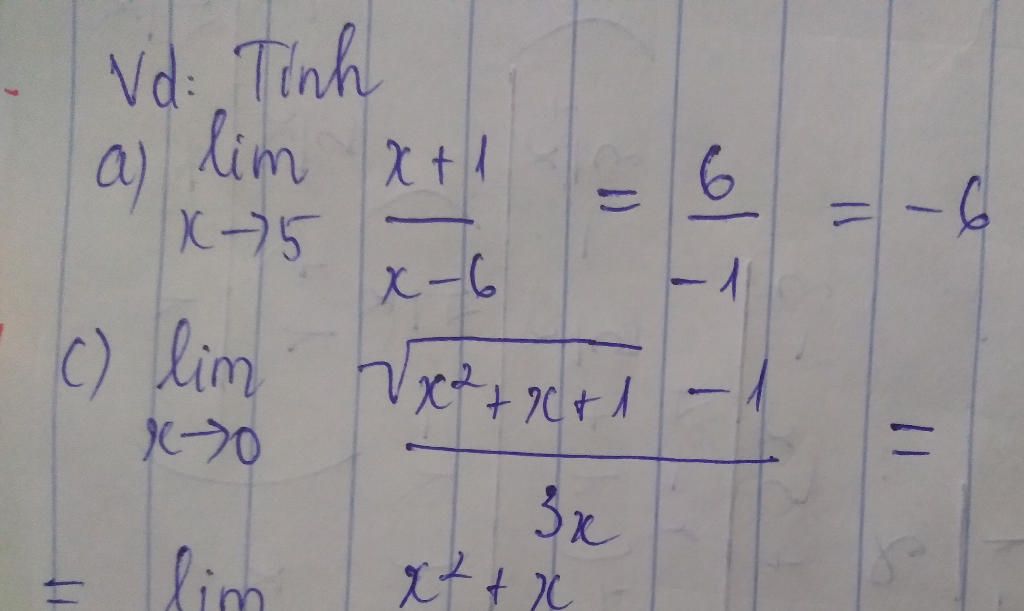 Vd: Tính
a) lim x→5 (x+1)/(x-6) = 6/(-1) = -6
c) lim x→0 (√(x²+x+1) - 1)/(3x) =
= lim x²+x